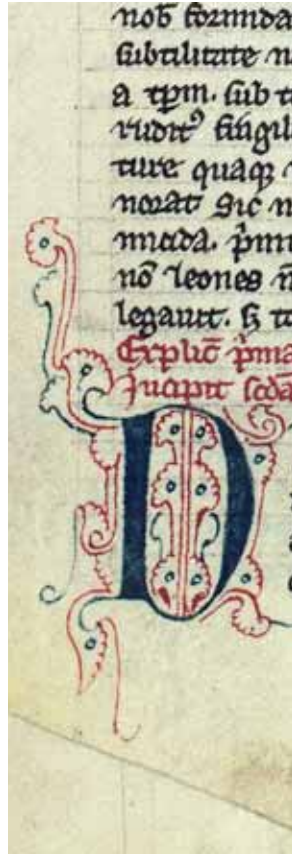 nob̄ formida
subtilitate n
a tp̄m. sub t
rudit᷒ singul
ture quaq;
norat Sic n
micida. p̄mi
nō leones n̄
legauit. h̄ t
Explic̄ p̄ma
Incipit scd̄a
D